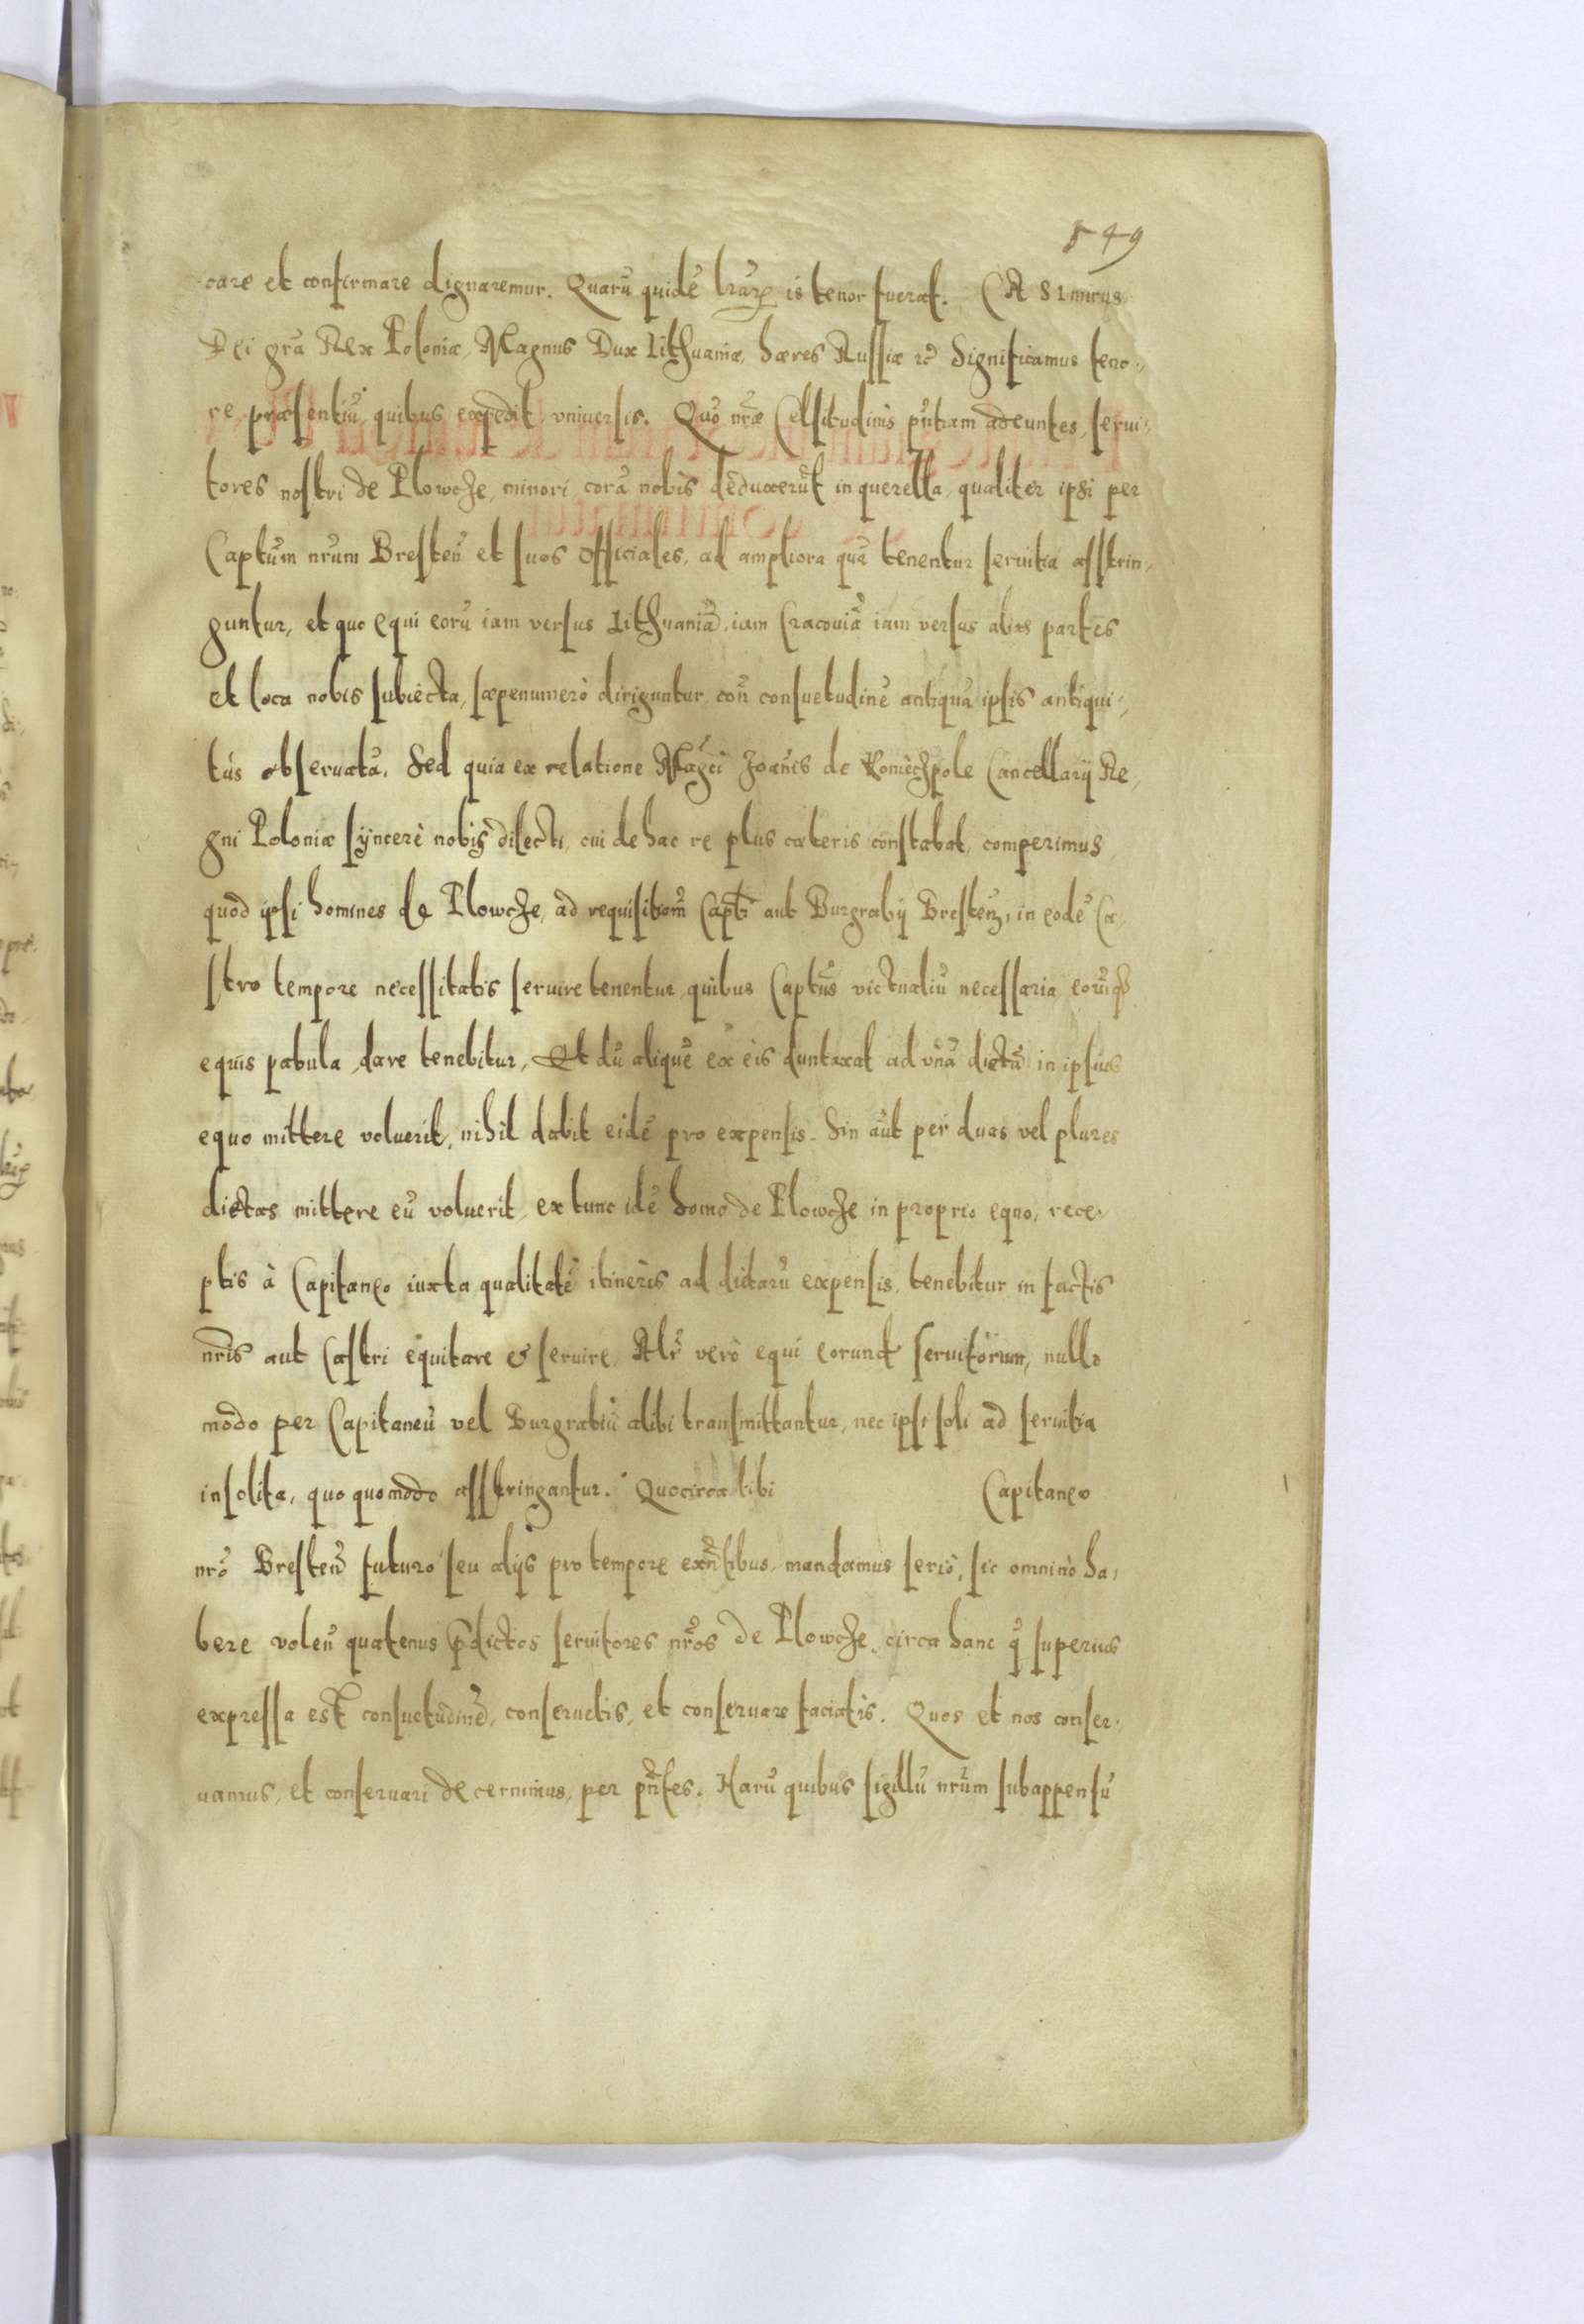 549
care et confirmare dignaremur. Quarū quidē lrarꝝ is tenor fuerat. CASImirus
Dei grā Rex Poloniæ, Magnus Dux Lithuaniæ, hæres Russiæ ꝛc̄ Significamus teno-
re præsentiū, quibus expedit, vniuersis. Quō nrǣ Celsitudinis pn̄tiam adeuntes, serui-
tores nostri de Plowcze, minori, corā nobis deduxerūt in querella, qualiter ipsi per
Captūm nrūm Bresteñ et suos Officiales, ad ampliora quā tenentur seruitia asstrin-
guntur, et quo equi eorū iam versus Lithuaniā, iam Cracouiā iam versus alias partes
et loca nobis subiecta, sæpenumerò diriguntur, coñ consuetudinē antiquā ipsis antiqui-
tùs obseruatā. Sed quia ex relatione Magci Joānis de Koniechpole Cancellarij Re-
gni Poloniæ sÿncerè nobis dilecti, cui de hac re plus cæteris constabat, comperimus,
quod ipsi homines de Plowcze, ad requisitiom̄ Captī aut Burgrabij Bresteñ, in eodē Ca
stro tempore necessitatis seruire tenentur, quibus Captn̄s victualiū necessaria, eorūqꝫ
equis pabula, dare tenebitur, Et dū aliquē ex eis duntaxat ad vnā dietā in ipsius
equo mittere voluerit, nihil dabit eidē pro expensis. Sin aūt per duas vel plures
dietas mittere eū voluerit, ex tunc idē homo de Plowcze in proprio equo, rece-
ptis à Capitaneo iuxta qualitatē itineris ad dietarū expensis, tenebitur in factis
nrīs aut Castri equitare & seruire, Alr̄ verò equi eorund seruitorum, nullo
modo per Capitaneū vel Burgrabiū alibi transmittantur, nec ipsi soli ad seruitia
insolita, quo quomodo asstringantur. Quocirca tibi Capitaneo
nrō Bresteñ futuro seu alijs pro tempore exn̄tibus, mandamus seriò, sic omninò ha-
bere voleñ quatenus p̄dictos seruitores nrōs de Plowcze, circa hanc q̄ superius
expressa est consuetudinē, conseruetis, et conseruare faciatis. Quos et nos conser-
uamus, et conseruari decernimus, per pn̄tes. Harū quibus sigillū nrūm subappensū